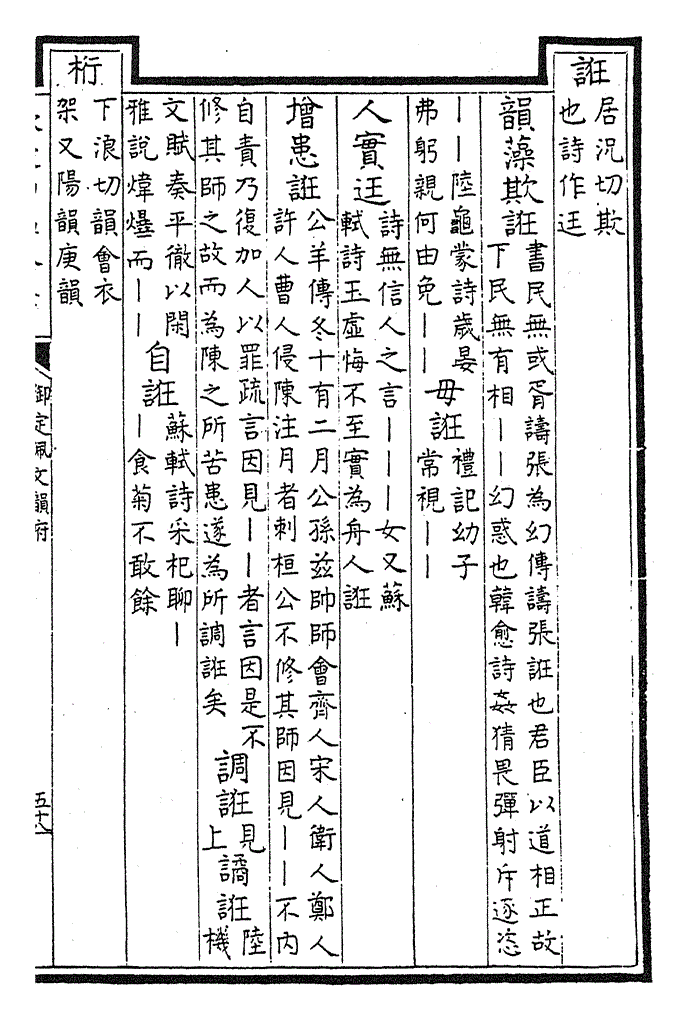 誑
居況切欺
也詩作迋
韻藻欺誑
書民無或胥譸張為幻傳譸張誑也君臣以道相正故
下民無有相丨丨幻惑也韓愈詩姦猜畏彈射斥逐恣
丨丨陸龜蒙詩歲晏
弗躬親何由免丨丨
毋誑
禮記幼子
常視丨丨
人實迋
詩無信人之言丨丨丨女又蘇
軾詩玉虛悔不至實為舟人誑
增患誑
公羊傳冬十有二月公孫兹帥師會齊人宋人衛人鄭人
許人曹人侵陳注月者刺桓公不修其師因見丨丨不内
自責乃復加人以罪疏言因見丨丨者言因是不
修其師之故而為陳之所苦患遂為所調誑矣
調誑
見
上
譎誑
陸
機
文賦奏平徹以閑
雅說煒爗而丨丨
自誑
蘇軾詩采杞聊丨
丨食菊不敢餘
桁
下浪切韻會衣
架又陽韻庚韻
御定佩文韻府
五十八